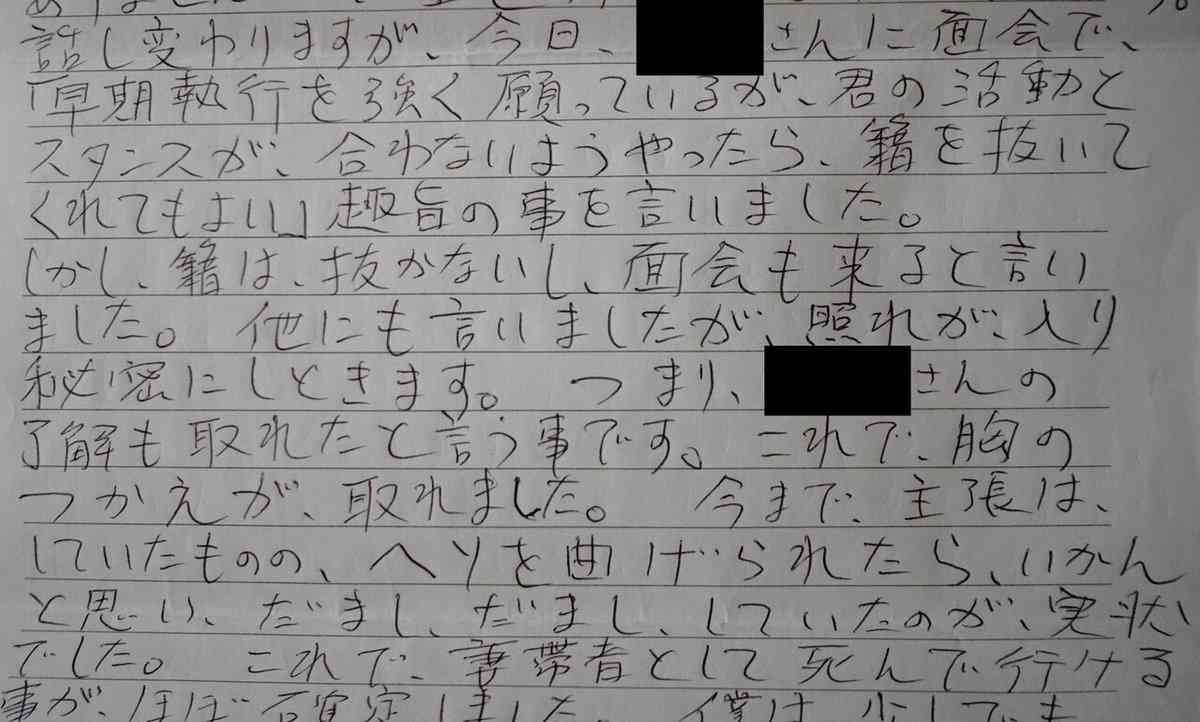 話し変わりますが、今日、さんに面会で、
「早期執行を強く願っているが、君の活動と
スタンスが、合わないようやったら、籍を抜いて
くれてもよい」趣旨の事を言いました。
しかし、籍は、抜かないし、面会も来ると言い
ました。他にも言いましたが、照れが、入り
秘密にしときます。つまり、さんの
了解も取れたと言う事です。これで、胸の
つかえが、取れました。今まで、主張は、
していたものの、ヘソを曲げられたら、いかん
と思い、だまし、だまし、していたのが、実状
でした。これで、妻帯者として死んで行ける
事が、ほぼ確定しました。僕は、少しでも